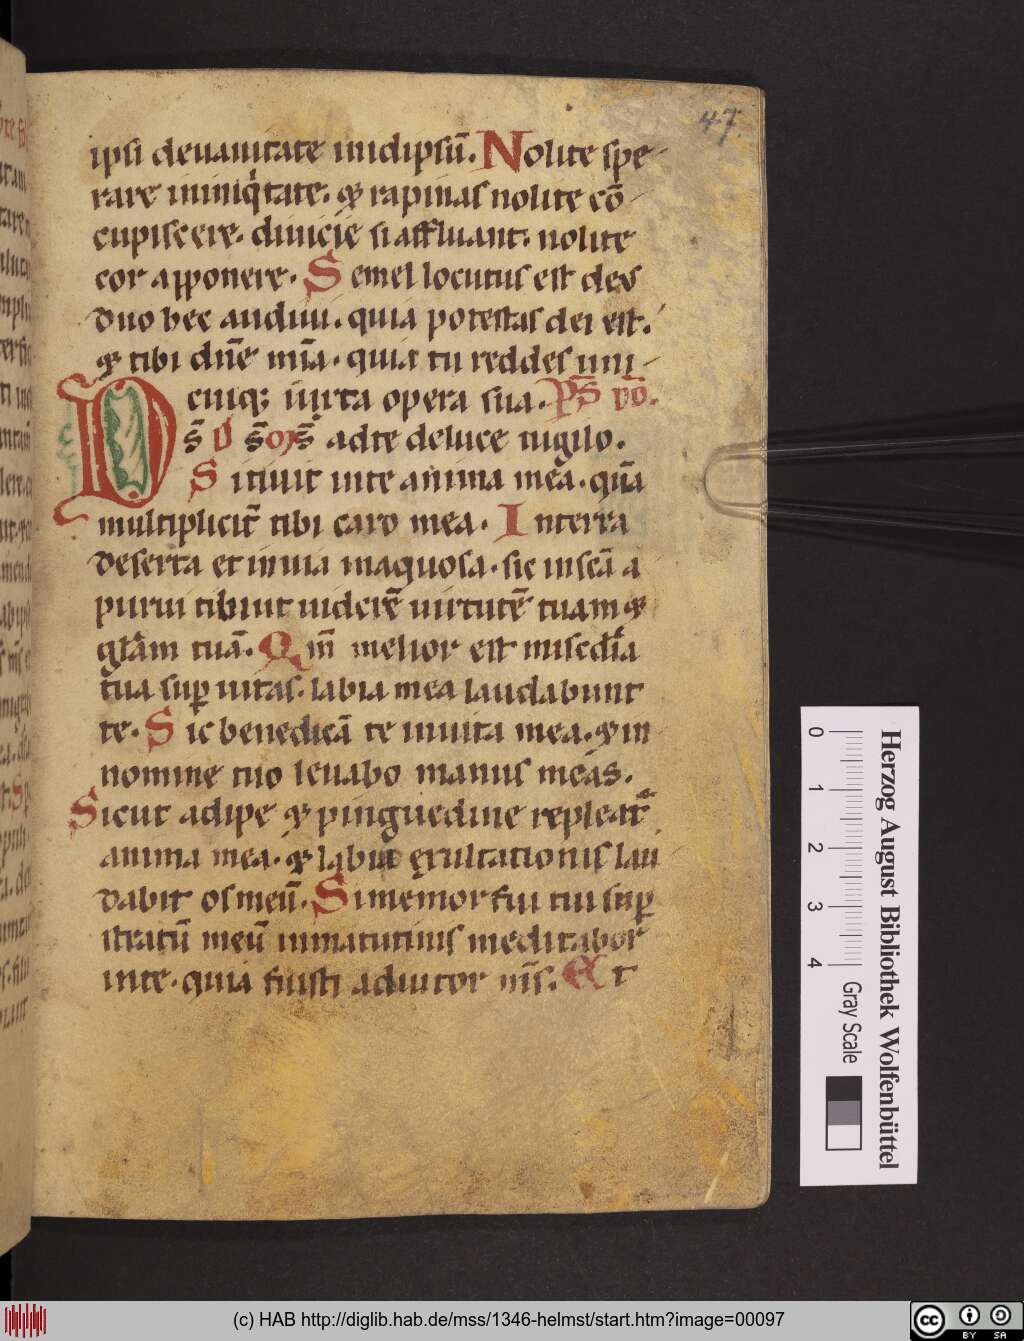 47
ipsi deuanitate inidipsū. Nolite spe
rare in iniq̇tate. ⁊ rapinas nolite cō
cupiscere. diuicię si affluant. nolite
cor apponere. Semel locutus est deus
duo hec audiui. quia potestas dei est.
⁊ tibi dn̄e mīa. quia tu reddes uni
cuiq; iuxta opera sua. Ps̄ dd̄.
Ds̄ ds̄ ms̄ adte deluce uigilo.
Sitiuit inte anima mea. quā
multiplicit̄ tibi caro mea. Interra
deserta et inuia inaquosa. sic inscā a
parui tibi ut uiderē uirtutē tuam ⁊
gl̄am tuā. Qm̄ melior est miscdīa
tua sup uitas. labia mea laudabunt
te. Sic benedicā te inuita mea. ⁊ in
nomine tuo leuabo manus meas.
Sicut adipe ⁊ pinguedine repleat̄
anima mea. ⁊ labiis exultationis lau
dabit os meū. Si memor fui tui sup
stratū meū inmatutinis meditabor
inte. quia fuisti adiutor ms̄. Et
Herzog August Bibliothek Wolfenbüttel
0 1 2 3 4 Gray Scale
(c) HAB http://diglib.hab.de/mss/1346-helmst/start.htm?image=00097
cc BY SA